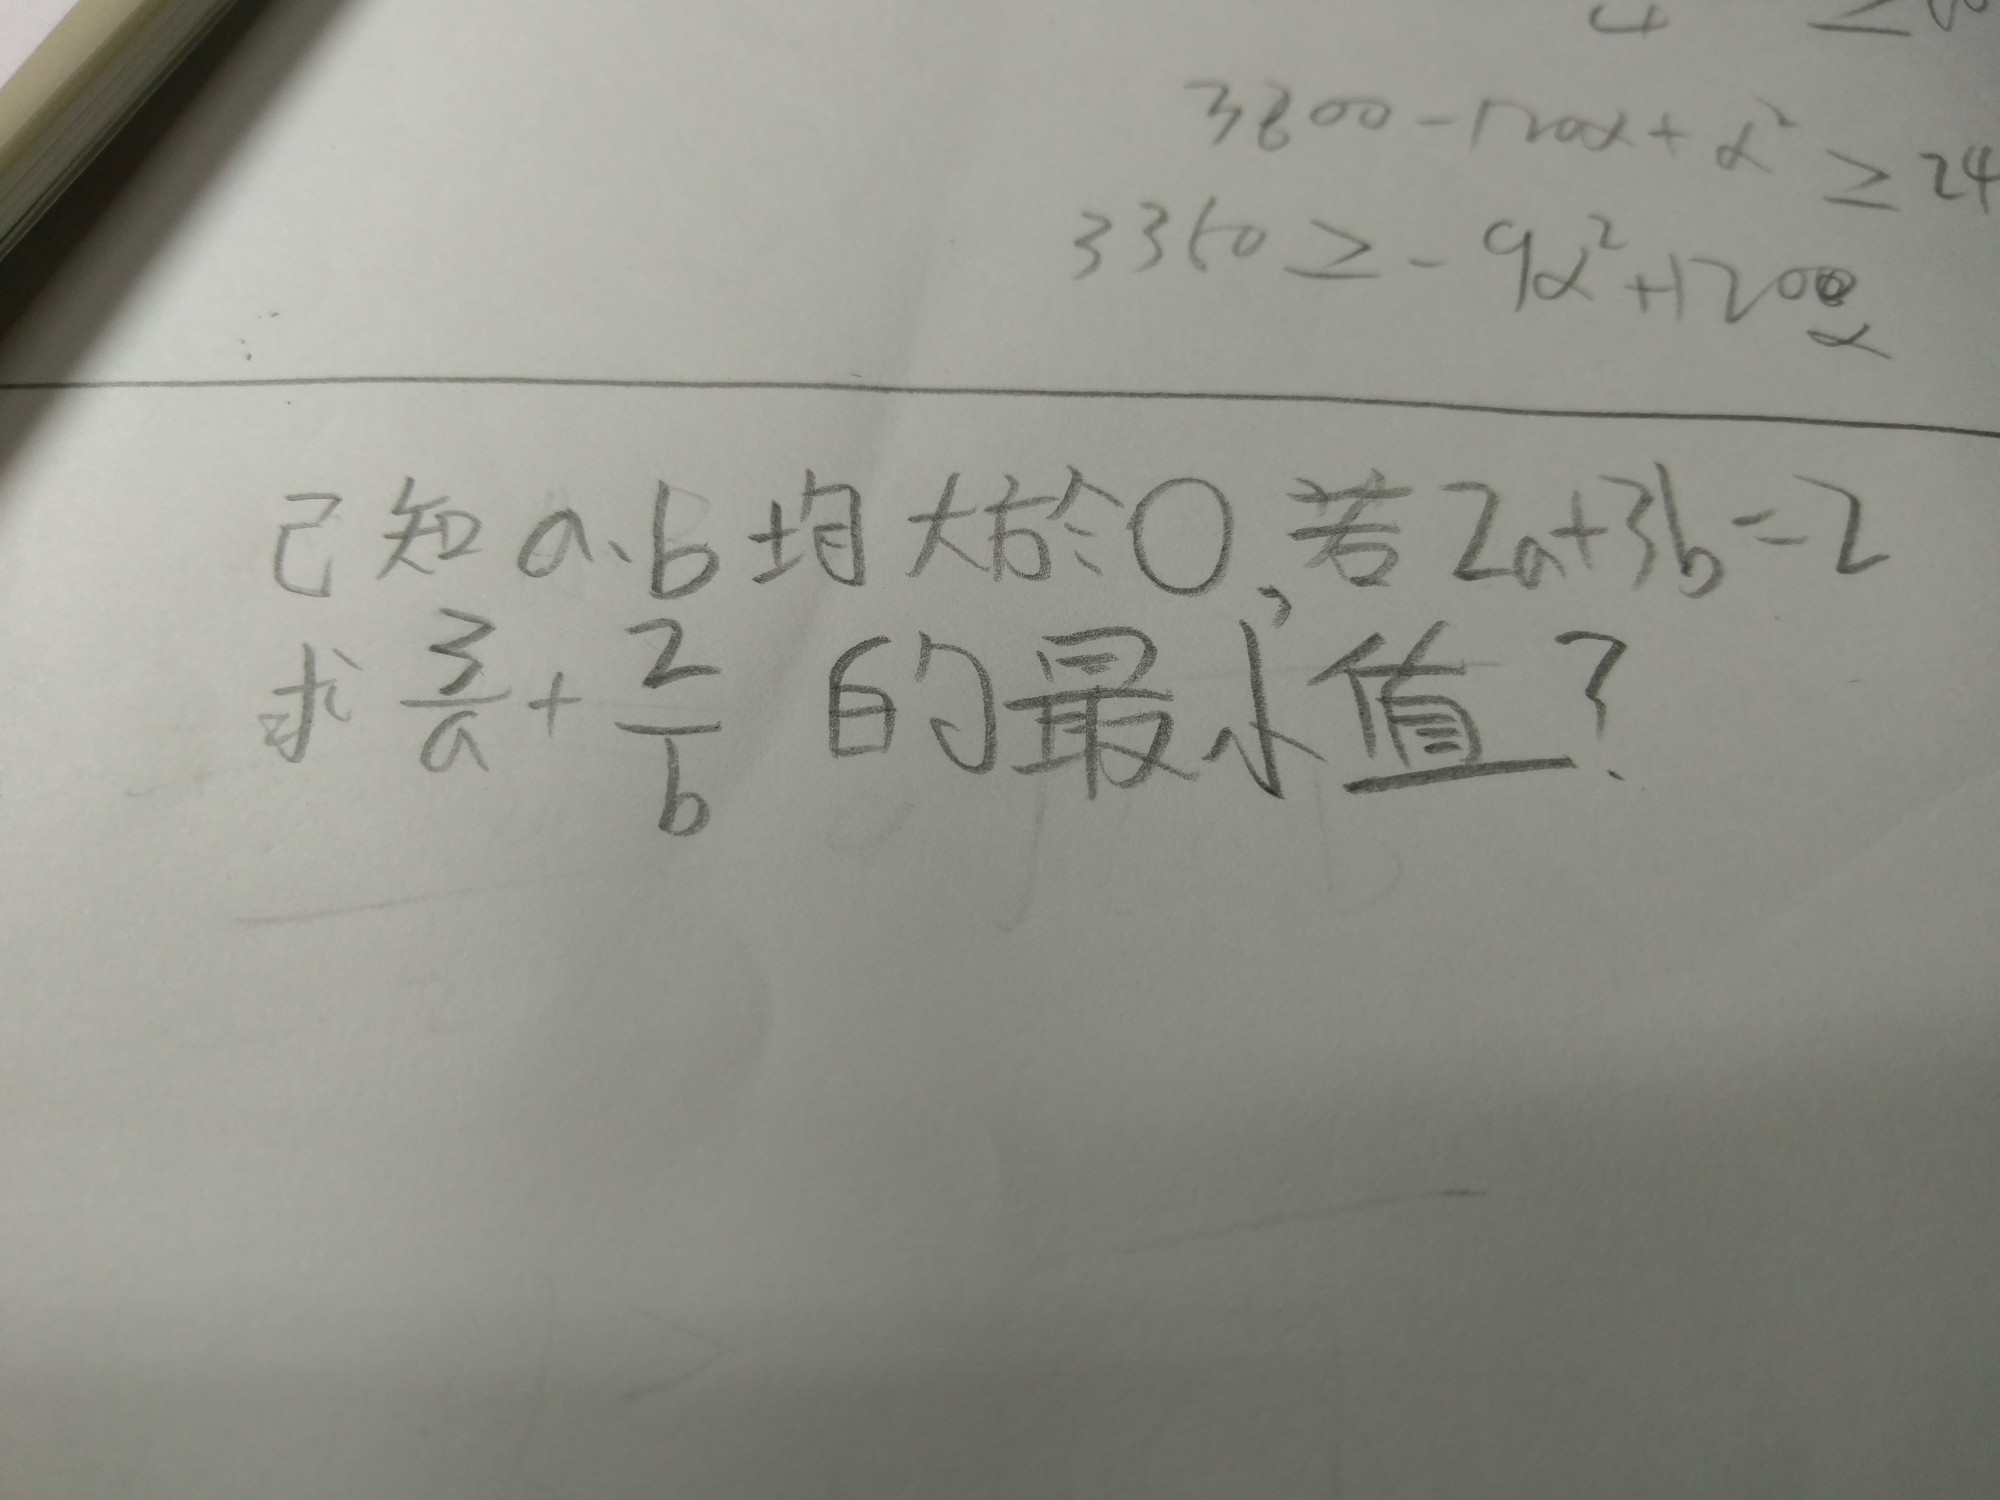 3600-120α+α² ≥ 24
3360 ≥ -9α²+1200α
已知a、b均大於0,若2a+3b=2
求 3/a + 2/b 的最小值?